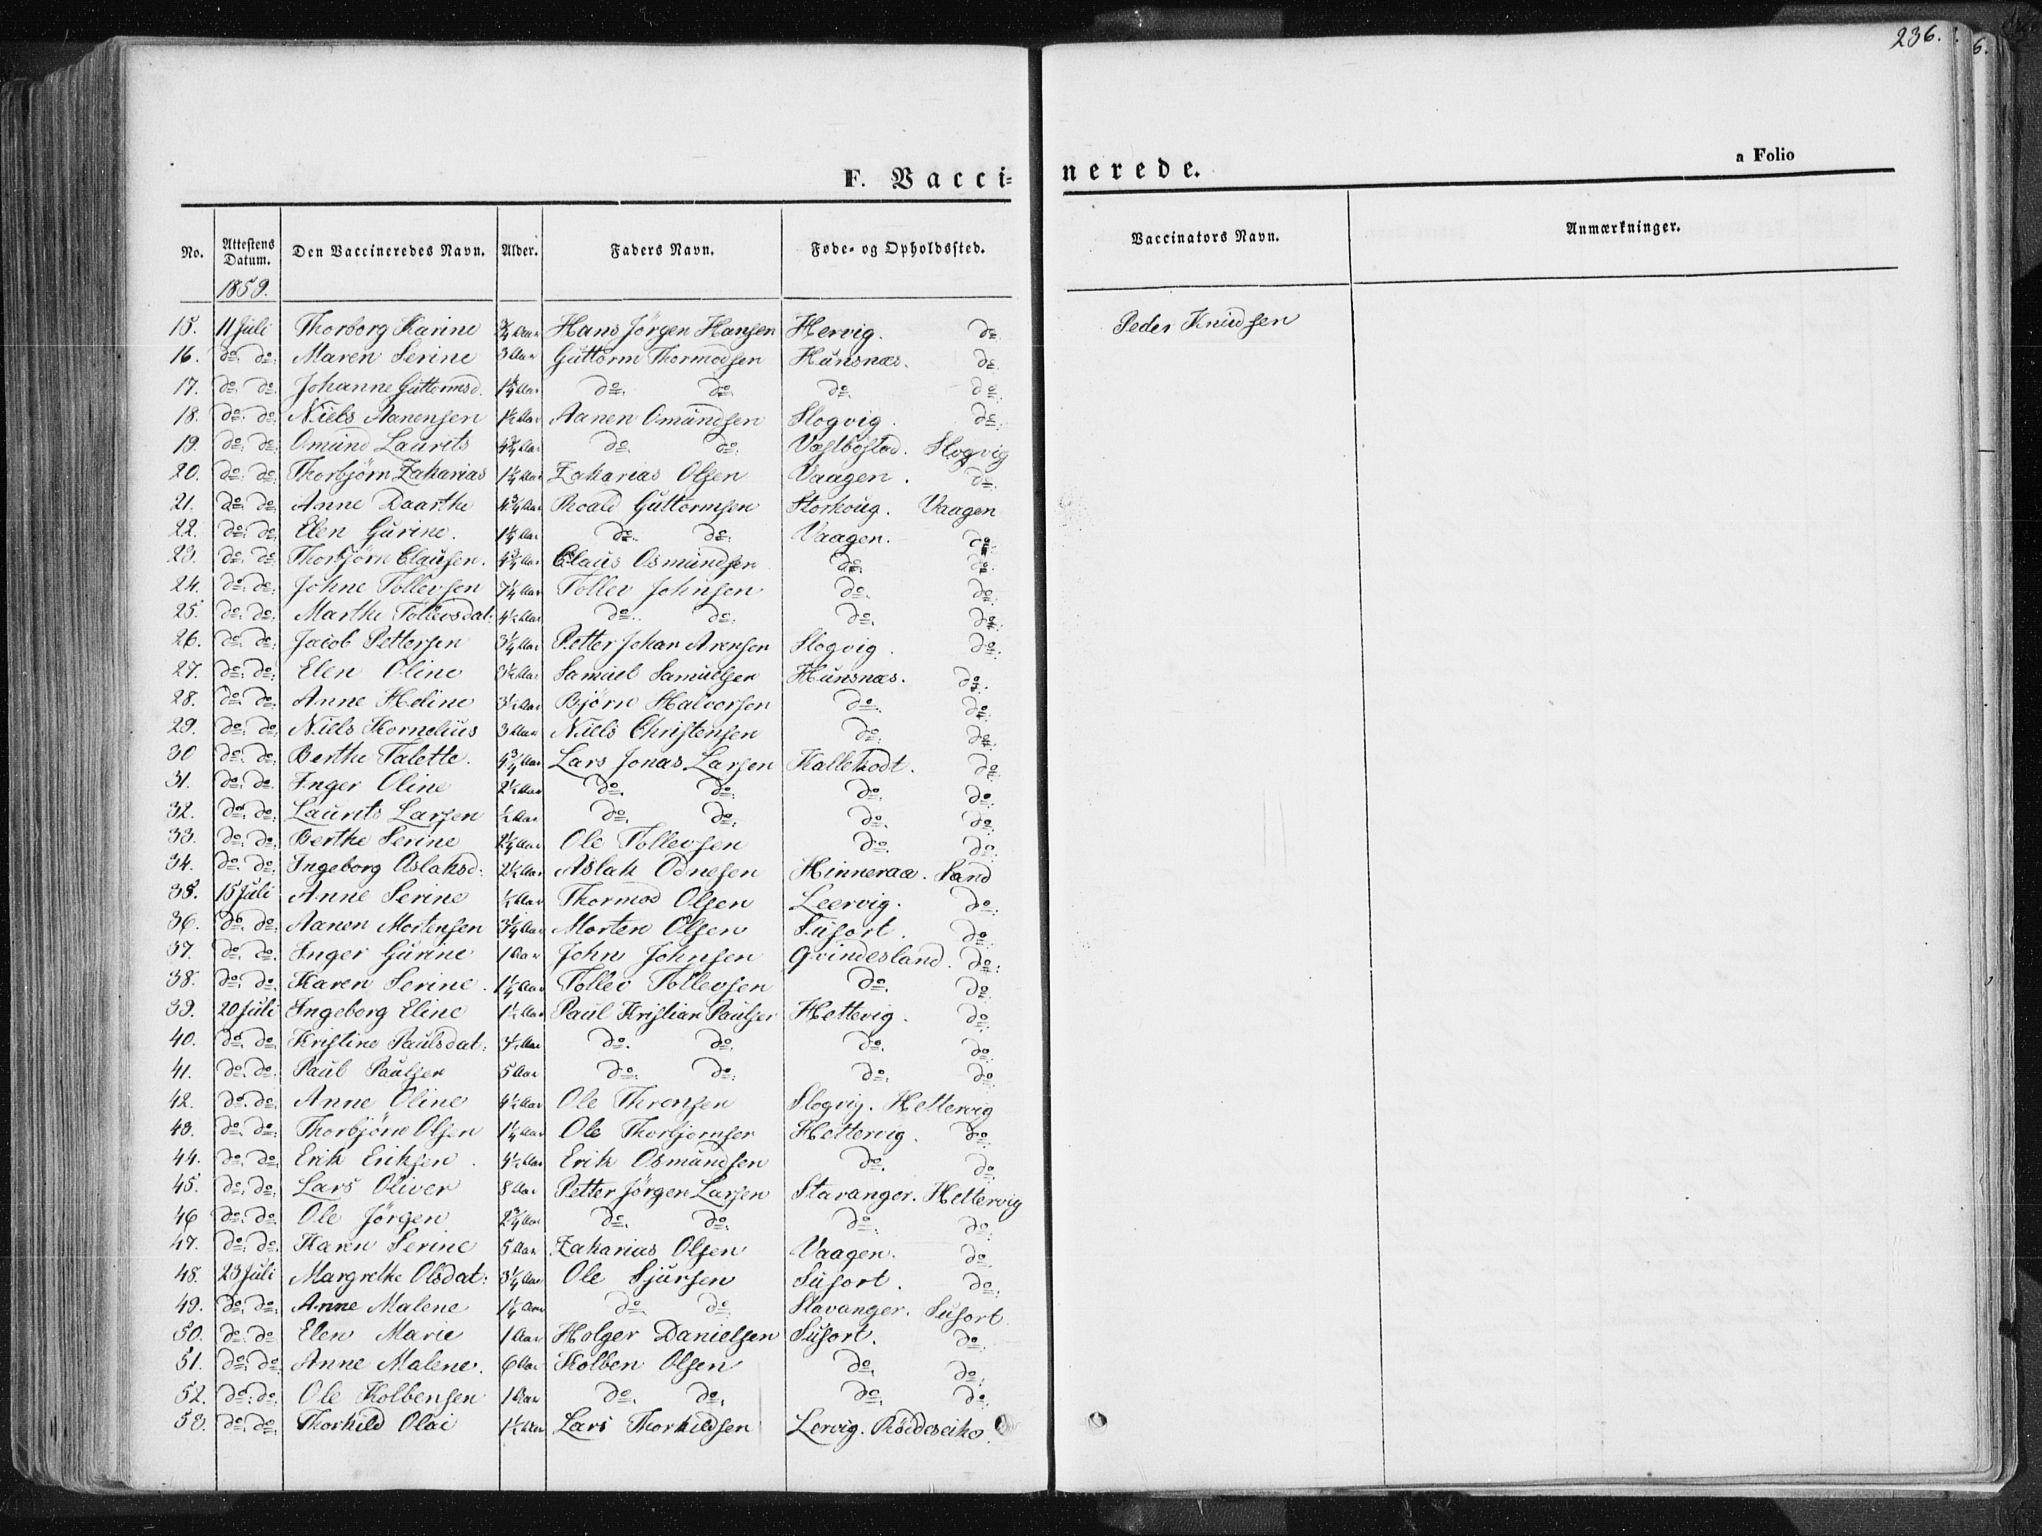 236.
6.
a Folio
F. Vacci=nerede.
No. Attestens Datum. Den Vaccineredes Navn. Alder. Faders Navn. Føde- og Opholdssted. Vaccinators Navn. Anmærkninger.
1859.
15. 11 Juli Thorborg Karine ¾ Aar Hans Jörgen Hansen Hervig. do Peder Knudsen
16. do: do: Maren Serine 3 Aar Guttorm Thormodsen Hunsnæs. do
17. do: do: Johanne Guttormsd. 1¼ Aar do: do: do: do:
18. do: do: Niels Aanensen 1½ Aar Aanen Omundsen Slogvig. do:
19. do: do: Omund Laurits 4¾ Aar do: do: Væstbøstad. Slogvig
20. do: do: Thorbjörn Zakarias 1¼ Aar Zakarias Olsen Vaagen. do:
21. do: do: Anne Daarthe 4¾ Aar Roald Guttormsen Storhoug. Vaagen
22. do: do: Elen Gurine. 1¼ Aar do: do: Vaagen. do:
23. do: do: Thorbjörn Clausen. 4¾ Aar Claus Osmundsen do: do:
24. do: do: Johne Tollevsen 7¼ Aar Tollev Johnsen do: do:
25. do: do: Marthe Tollevsdat: 4½ Aar do: do: do: do:
26. do: do: Jacob Pettersen 3¼ Aar Petter Johan Arensen Slogvig. do:
27. do: do: Elen Oline 3½ Aar Samuel Samuelsen Hunsnæs. do:
28. do: do: Anne Heline 3½ Aar Bjørn Halvorsen do: do:
29. do: do: Niels Kornelius 3 Aar Niels Christensen do: do:
30 do: do: Berthe Talette. 4¾ Aar Lars Jonas Larsen Kallehodt. do:
31. do: do: Inger Oline 2½ Aar do: do: do: do:
32. do: do: Laurits Larsen ½ Aar do: do: do: do:
33. do: do: Berthe Serine 2¼ Aar Ole Tollevsen do: do:
34. do: do: Ingeborg Aslaksd: 2½ Aar Aslak Odnesen Hinneraa. Sand
35. 15 Juli Anne Serine ½ Aar Thormod Olsen Leervig. do:
36. do: do: Aanen Mortensen 3¼ Aar Morten Olsen Susort. do:
37. do: do: Inger Gurine 1 Aar John Johnsen Qvindesland. do:
38. do: do: Karen Serine. 1¼ Aar Tollev Tollevsen do: do:
39. 20 Juli Ingeborg Eline 1½ Aar Paul Kristian Paulsen Hettevig. do:
40. do: do: Kristine Paulsdat: 3½ Aar do: do: do: do:
41. do: do: Paul Paulsen 5 Aar do: do: do: do:
42. do: do: Anne Oline 4½ Aar Ole Thronsen Slogvig. Hettervig
43. do: do: Thorbjørn Olsen 1¼ Aar Ole Thorbjørnsen Hettervig. do:
44. do: do: Erik Eriksen. 4½ Aar Erik Osmundsen do: do:
45. do: do: Lars Oliver 8 Aar Petter Jörgen Larsen Stavanger. Hettervig
46 do: do: Ole Jörgen 2¾ Aar do: do: do: do:
47. do: do: Karen Serine 5 Aar Zakarias Olsen Vaagen. do:
48. 23 Juli Margrethe Olsdat: 3¼ Aar Ole Sjursen Susort. do:
49. do: do: Anne Malene 1¼ Aar do: do: Stavanger. Susort.
50. do: do: Elen Marie 1 Aar Holger Danielsen Susort. do:
51. do: do: Anne Malene. 6 Aar Kolben Olsen do: do:
52. do: do: Ole Kolbensen 1 Aar do: do: do: do:
53. do: do: Thorkild Olai 1½ Aar Lars Thorkildsen Lervig.